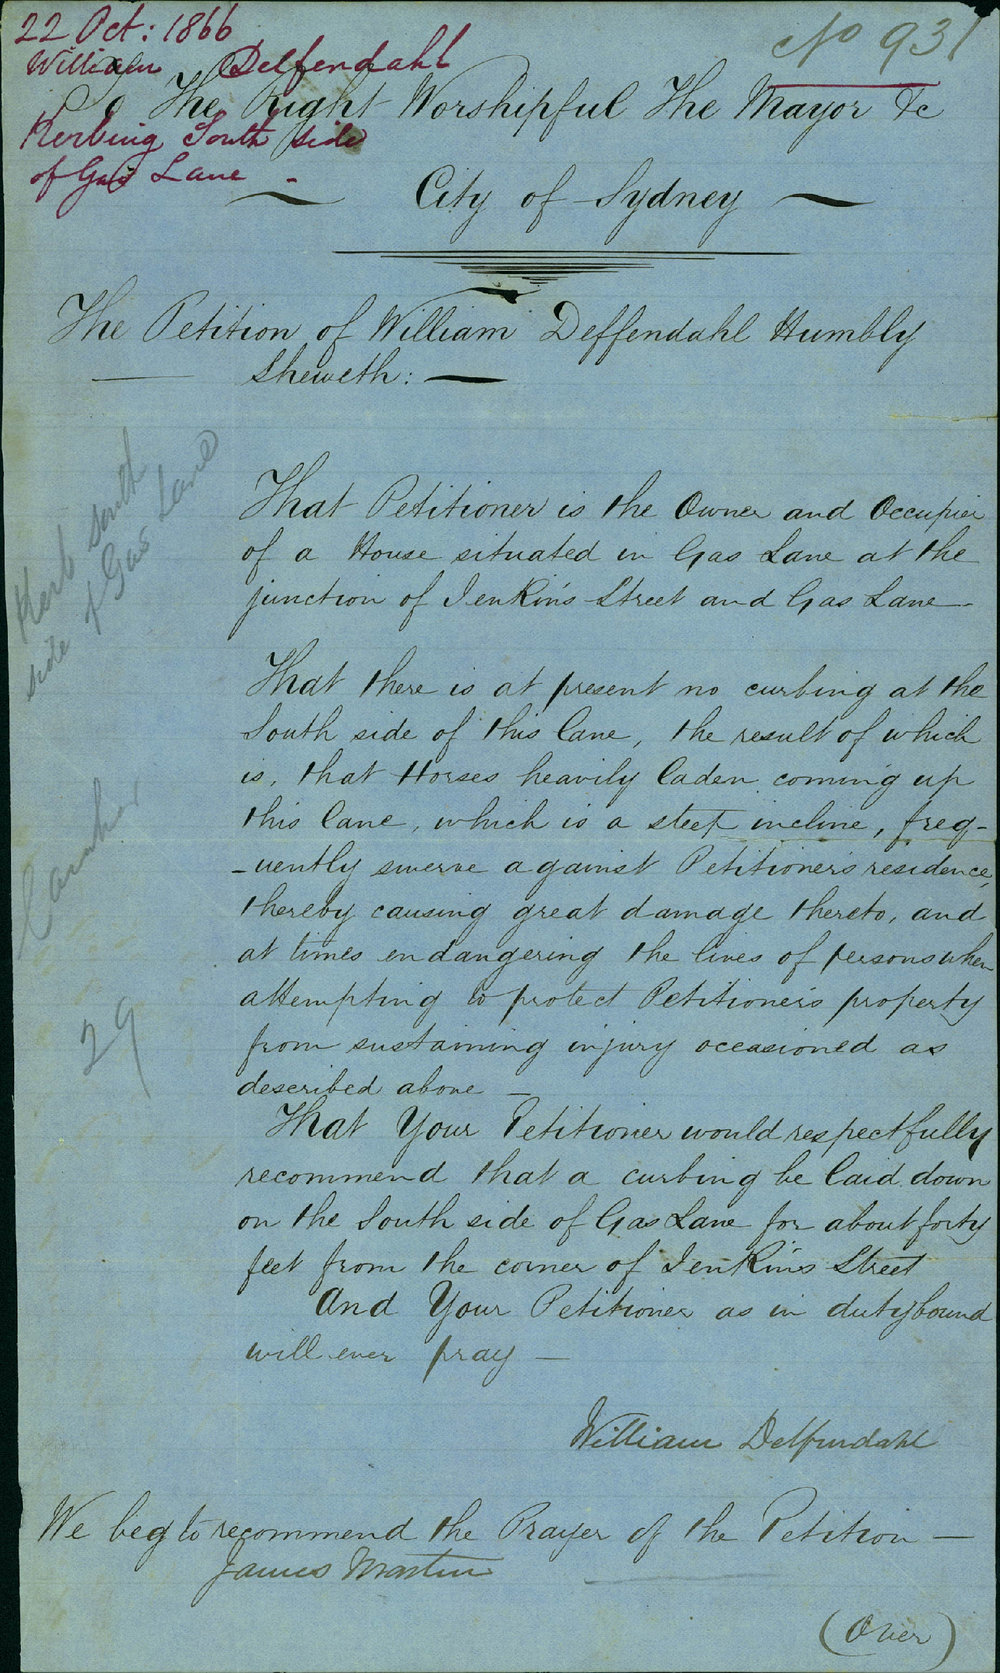 22 Oct: 1866
William Delfendahl
Kerbing South side
of Gas Lane -
No 931
To The Right Worshipful The Mayor &c
City of Sydney
The Petition of William Deffendahl Humbly
Sheweth:
That Petitioner is the Owner and Occupier
of a House situated in Gas Lane at the
junction of Jenkins Street and Gas Lane
That there is at present no curbing at the
South side of this lane, the result of which
is, that Horses heavily laden coming up
this lane, which is a steep incline, freq-
-uently swerve against Petitioner's residence,
thereby causing great damage thereto, and
at times endangering the lives of persons when
attempting to protect Petitioner's property
from sustaining injury occasioned as
described above —
That Your Petitioner would respectfully
recommend that a curbing be laid down
on the South side of Gas Lane for about forty
feet from the corner of Jenkin's Street
And Your Petitioner as in duty bound
will ever pray —
William Delfendahl
We beg to recommend the Prayer of the Petition —
James Martin
(Over)
Kerb South
side of Gas Lane
29